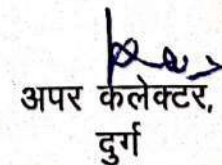 अपर कलेक्टर,
दुर्ग